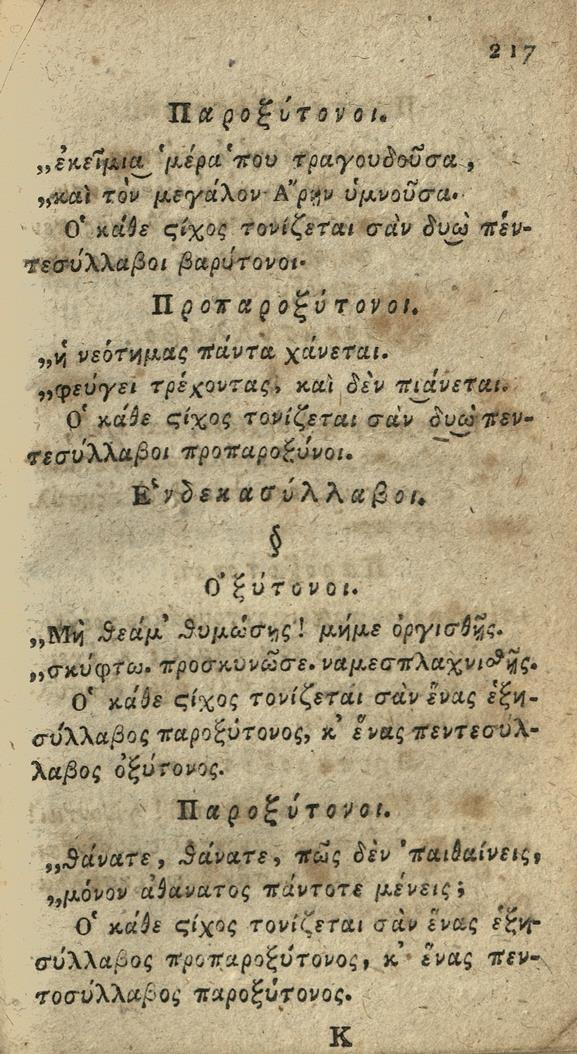 217
Παροξύτονοι.
„ἐκεῖμια 'μέρα 'που τραγουδοῦσα,
„καὶ τὸν μεγάλον Ἄρην ὑμνοῦσα.
Ὁ κάθε ςίχος τονίζεται σὰν δυὼ πέν-
τεσύλλαβοι βαρύτονοι.
Προπαροξύτονοι.
„ἡ νεότημας πάντα χάνεται.
„φεύγει τρέχοντας, καὶ δὲν πιάνεται.
Ὁ κάθε ςίχος τονίζεται σὰν δυὼ πεν-
τεσύλλαβοι προπαροξύνοι.
Ἑνδεκασύλλαβοι.
§
Ὀξύτονοι.
„Μὴ θεάμ' θυμώσῃς! μήμε ὀργισθῇς.
„σκύφτω. προσκυνῶσε. ναμεσπλαχνισθῇς.
Ὁ κάθε ςίχος τονίζεται σὰν ἕνας ἑξη-
σύλλαβος παροξύτονος, κ' ἕνας πεντεσύλ-
λαβος ὀξύτονος.
Παροξύτονοι.
„θάνατε, θάνατε, πῶς δὲν 'παιθαίνεις,
„μόνον ἀθάνατος πάντοτε μένεις;
Ὁ κάθε ςίχος τονίζεται σὰν ἕνας ἑξη-
σύλλαβος προπαροξύτονος, κ' ἕνας πεν-
τοσύλλαβος παροξύτονος.
Κ